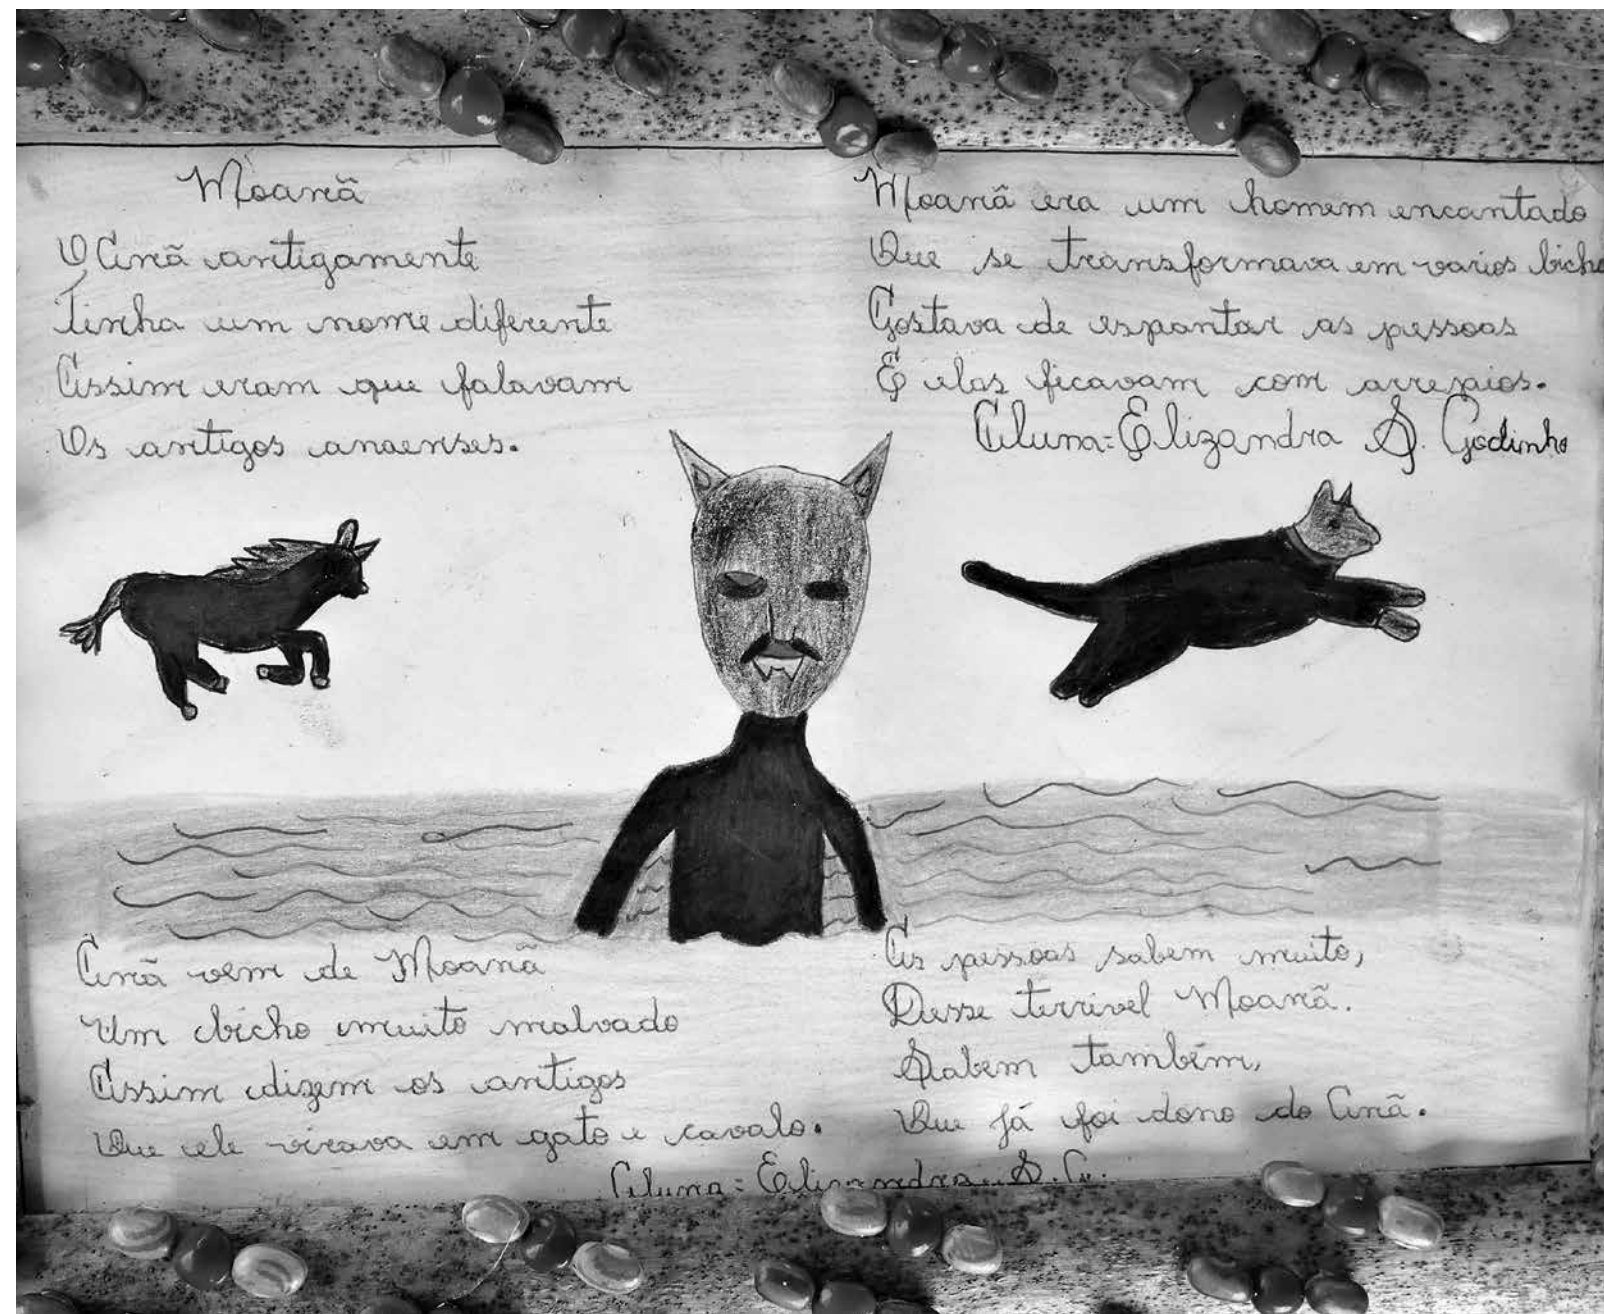 Moanã
O Anã antigamente
Tinha um nome diferente
Assim eram que falavam
Os antigos anaenses.
Moanã era um homem encantado
Que se transformava em varios bicho
Gostava de espantar as pessoas
E elas ficavam com arrepios.
Aluna: Elizandra S. Godinho
Anã vem de Moanã
Um bicho muito malvado
Assim dizem os antigos
Que ele virava em gato e cavalo.
As pessoas sabem muito,
Desse terrivel Moanã.
Sabem também,
Que já foi dono do Anã.
Aluna: Elizandra S. G.